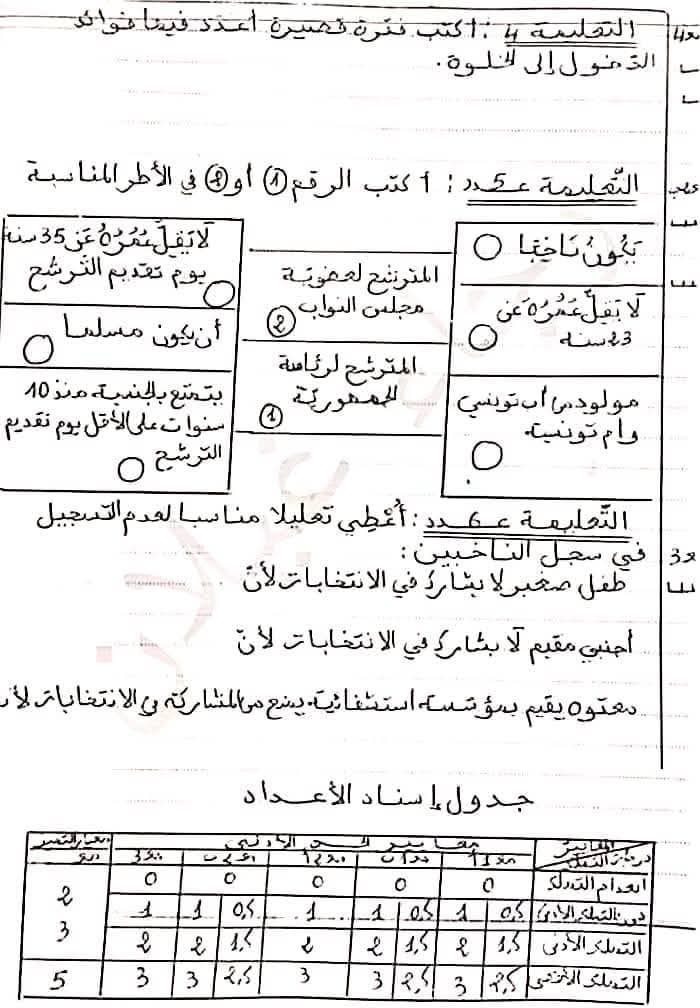 التعليمة 4 : أكتب فقرة قصيرة أعدد فيها فوائد
مع4
الدخول إلى الخلوة.
التعليمة عـ5ـدد : أكتب الرقم 1 أو 2 في الأطر المناسبة
يكونُ ناخبا
لا يقلّ عمُرُهُ عَن
23 سنة
مولود من أب تونسي
وأم تونسية
المترشح لعضوية
مجلس النواب
2
المترشح لرئاسة
الجمهورية
1
لا يَقِلّ عُمُرُهُ عَن 35 سنة
يوم تقديم الترشح
أن يكون مسلما
يتمتع بالجنسية منذ 10
سنوات على الأقل يوم تقديم
الترشح
التعليمة عـ6ـدد : أُعْطِي تعليلا مناسبا لعدم التسجيل
في سجل الناخبين :
مع3
طفل صغير لا يشارك في الانتخابات لأنّ
أجنبي مقيم لا يشارك في الانتخابات لأنّ
معتوه يقيم بمؤسسة استشفائية يمنع من المشاركة في الانتخابات لأن
جدول إسناد الأعداد
المعايير
درجات التملك
معايير الحد الأدنى
معيار التميز
انعدام التملك 0 0 0 0 0
دون التملك الأدنى 0,5 1 0,5 1 1 0,5 1 1
2
التملك الأدنى 1,5 2 1,5 2 2 1,5 2 2
3
التملك الأقصى 2,5 3 2,5 3 3 2,5 3 3 5